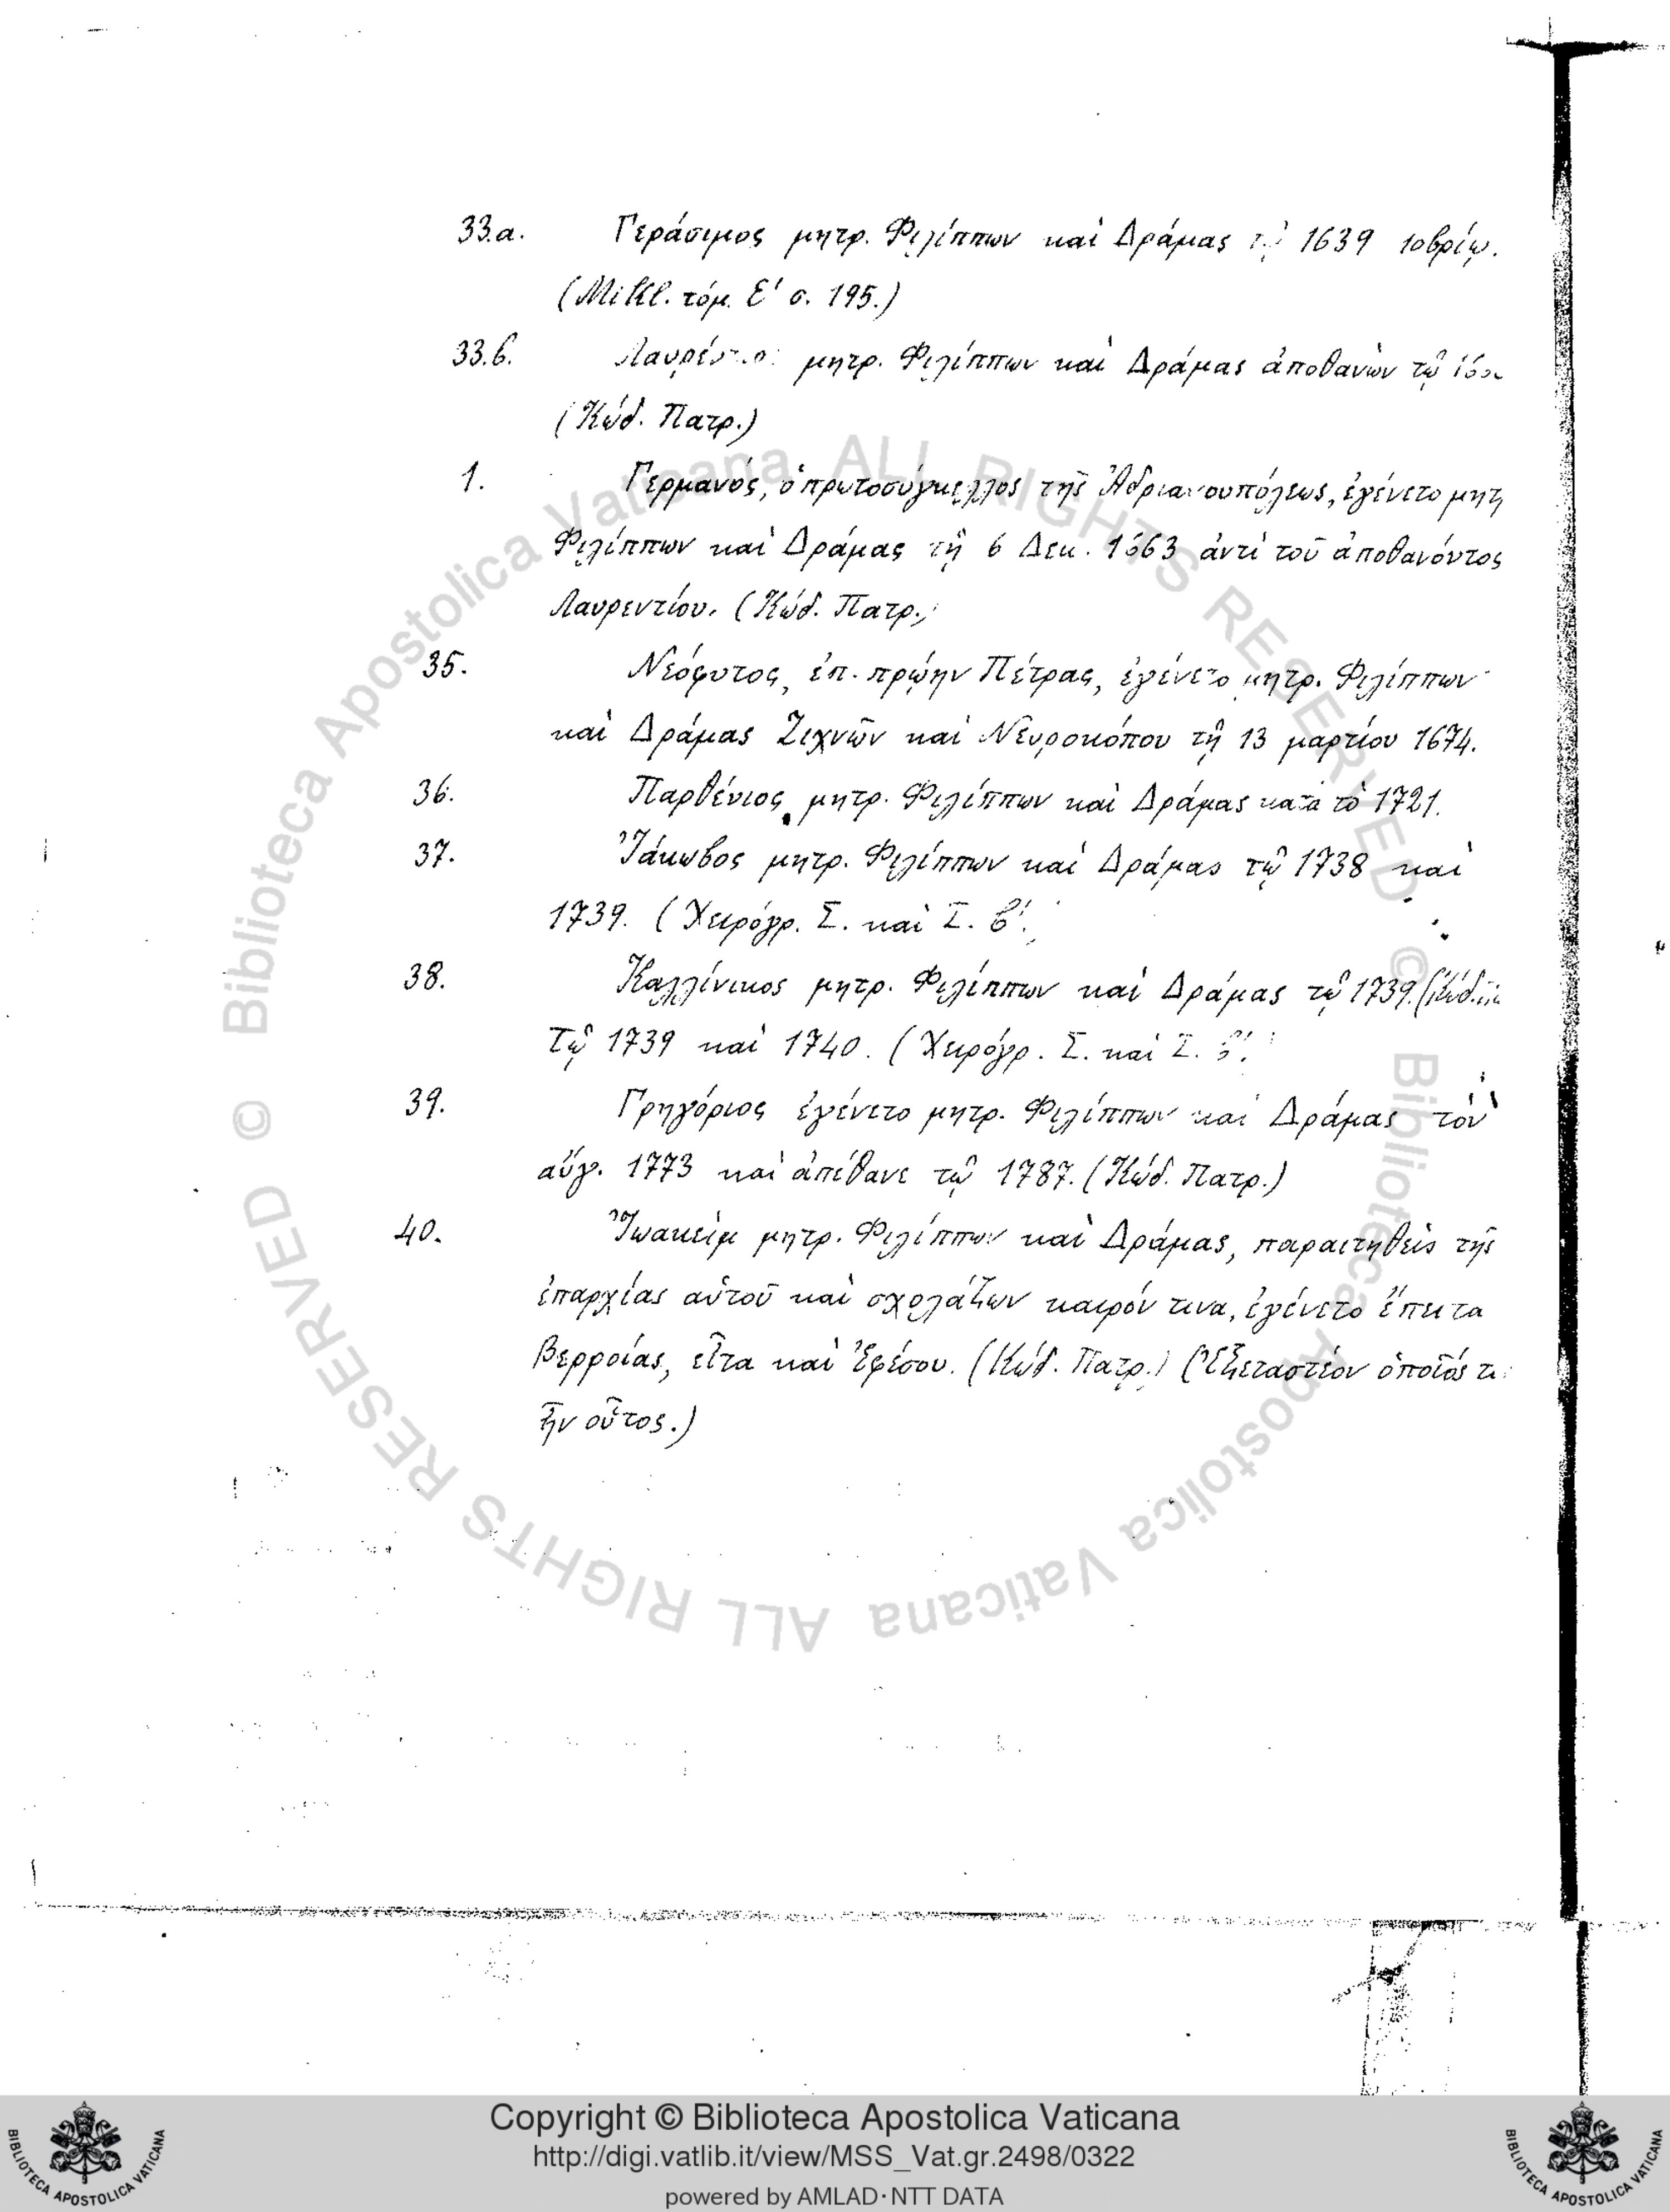 33.α. Γεράσιμος μητρ. Φιλίππων καὶ Δράμας τῷ 1639 10βρίῳ.
(Mikl. τόμ. Ε' σ. 195.)
33.β. Λαυρέντιος μητρ. Φιλίππων καὶ Δράμας ἀποθανὼν τῷ
(Κώδ. Πατρ.)
1. Γερμανός, ὁ πρωτοσύγκελλος τῆς Ἀδριανουπόλεως, ἐγένετο μητρ
Φιλίππων καὶ Δράμας τῇ 6 Δεκ. 1663 ἀντὶ τοῦ ἀποθανόντος
Λαυρεντίου. (Κώδ. Πατρ.)
35. Νεόφυτος, ἐπ. πρῴην Πέτρας, ἐγένετο μητρ. Φιλίππων
καὶ Δράμας Ζιχνῶν καὶ Νευροκόπου τῇ 13 μαρτίου 1674.
36. Παρθένιος μητρ. Φιλίππων καὶ Δράμας κατὰ τὸ 1721.
37. Ἰάκωβος μητρ. Φιλίππων καὶ Δράμας τῷ 1738 καὶ
1739. (Χειρόγρ. Σ. καὶ Σ. β'.
38. Καλλίνικος μητρ. Φιλίππων καὶ Δράμας τῷ 1739. (Κώδ.
Τῷ 1739 καὶ 1740. (Χειρόγρ. Σ. καὶ Σ. β'.
39. Γρηγόριος ἐγένετο μητρ. Φιλίππων καὶ Δράμας τὸν
αὔγ. 1773 καὶ ἀπέθανε τῷ 1787. (Κώδ. Πατρ.)
40. Ἰωακεὶμ μητρ. Φιλίππων καὶ Δράμας, παραιτηθεὶς τῆς
ἐπαρχίας αὐτοῦ καὶ σχολάζων καιρόν τινα, ἐγένετο ἔπειτα
Βερροίας, εἶτα καὶ Ἐφέσου. (Κώδ. Πατρ.) (Ἐξεταστέον ὁποῖός τι
ἦν οὗτος.)
© Biblioteca Apostolica Vaticana ALL RIGHTS RESERVED © Biblioteca Apostolica Vaticana ALL RIGHTS RESERVED
Copyright © Biblioteca Apostolica Vaticana
http://digi.vatlib.it/view/MSS_Vat.gr.2498/0322
powered by AMLAD·NTT DATA
BIBLIOTECA APOSTOLICA VATICANA
BIBLIOTECA APOSTOLICA VATICANA